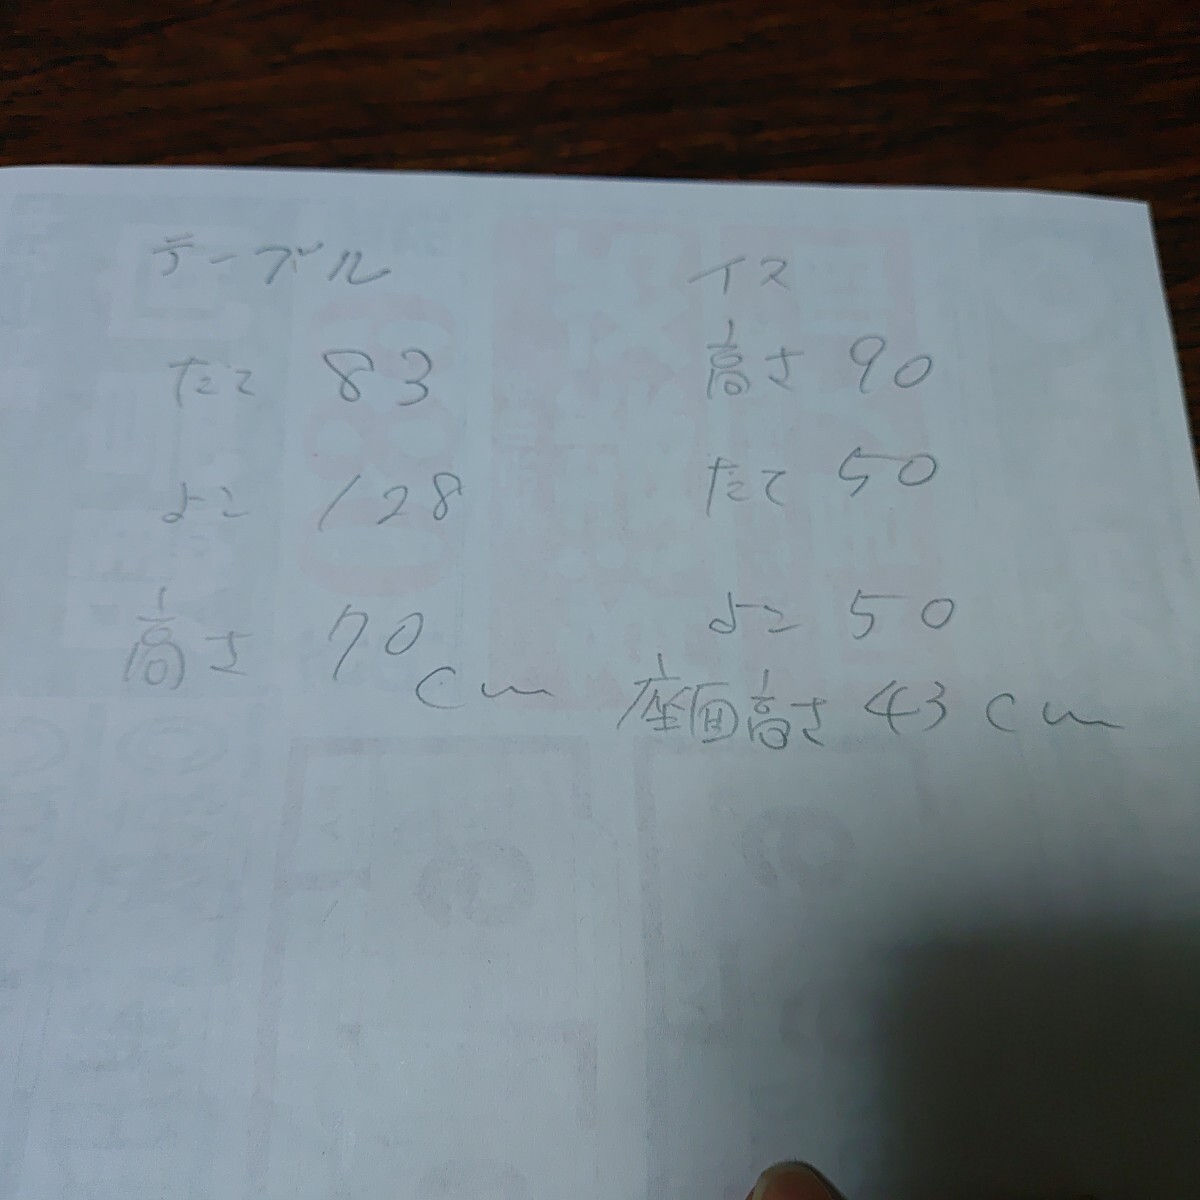 テーブル
たて 83
よこ 128
高さ 70
cm
イス
高さ 90
たて 50
よこ 50
座面高さ 43 cm